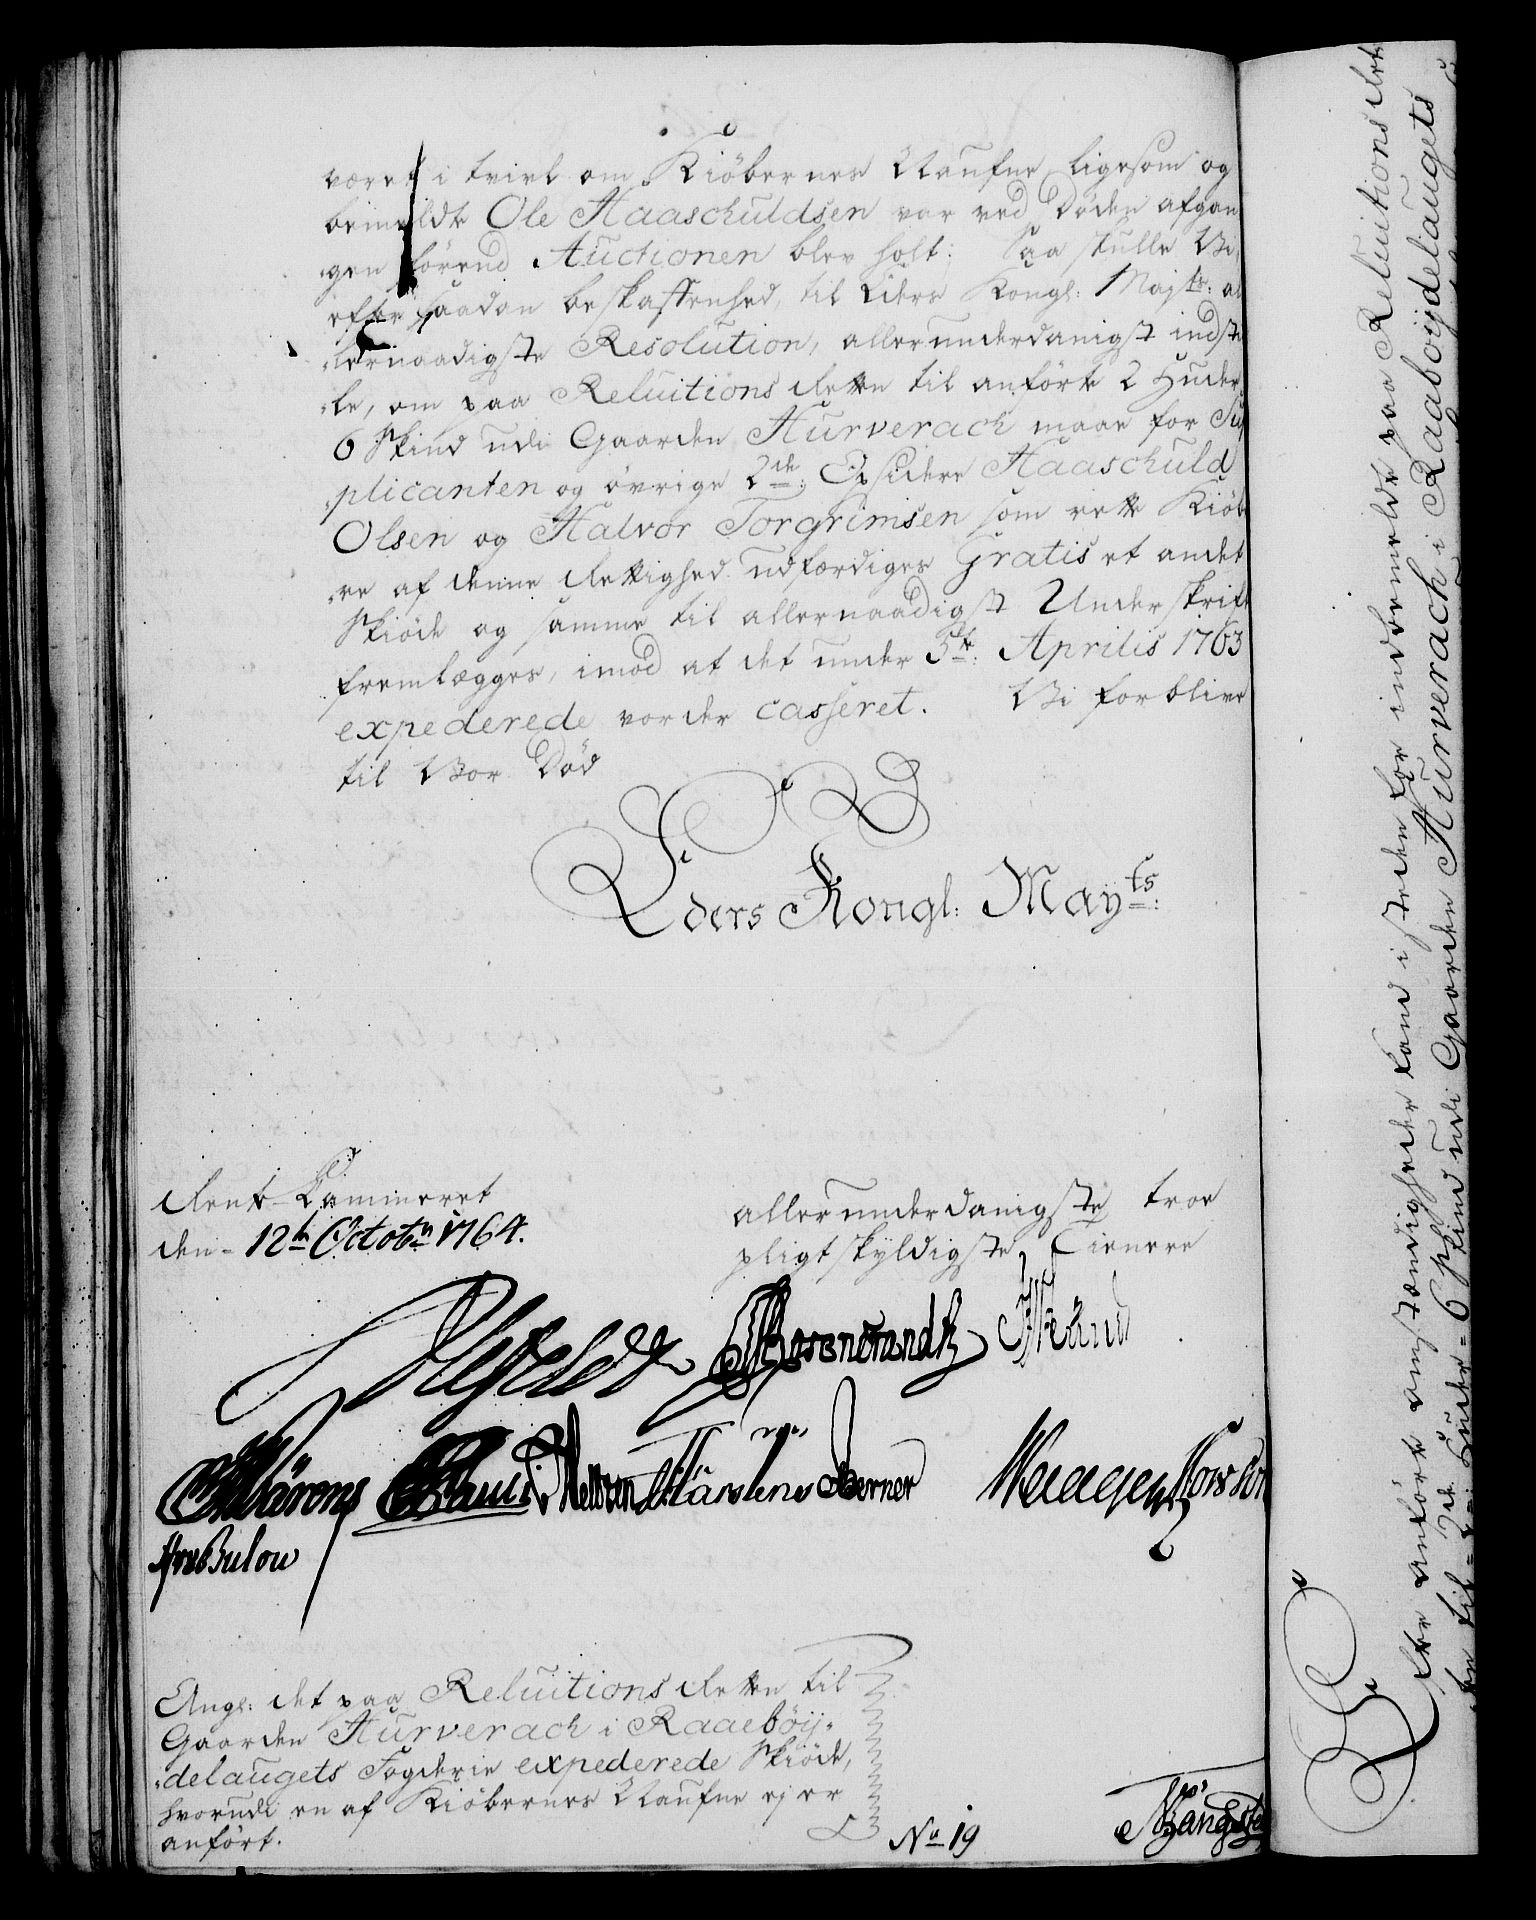 været i tvivl om Kiöbernes Naufne, ligesom og
bemeldte Ole Haaschuldsen var ved Döden afgan
gen förend Auctionen blev holt: Saa skulle Vi
efter saadan beskaffenhed, til Eders Kongl: Majts: al
lernaadigste Resolution, allerunderdanigst indstil
le, om paa Reluitions Retten til anförte 2 Huder
6 Skind udi Gaarden Hurverach maae for Sup
plicanten og övrige 2de: Opsidere Haaschuld
Olsen og Halvor Torgrimsen som rette Kiöbe
re af denne Rettighed udfærdiges Gratis et andet
Skiöde og samme til allernaadigst Underskrift
fremlægges, imod at det under 5te: Aprilis 1763
expederede vorder casseret. Vi forblive
til Vor Död
Eders Kongl: Mayts:
Rente Cammeret
den 12te Octobr 1764.
allerunderdanigste troe
pligtskyldigste Tienere
Bärens
Berner
Bulow
Angl: det paa Reluitions Retten til
Gaarden Hurverach i Raaebÿ
delaugets Fogderie expederede Skiöde,
hvorudi en af Kiöbernes Naufne ej er
anfört.
No 19
Efter anförte omstændigheder kand i steden for indbemeldte paa Reluitions Ret
ten til 2de Huder 6 Skind udi Gaarden Hurverach i Raaboijdelaugets